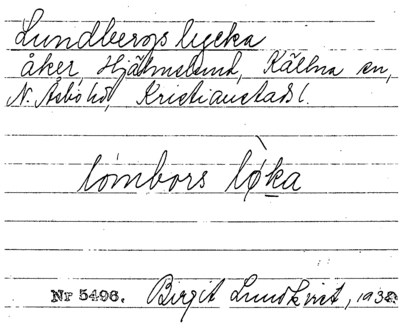 Lundbergs lycka
åker, Hjälmslund, Källna sn,
N. Åsbo hd, Kristianstads l.
lómbors lø̀ka
Nr 5496. Birgit Lundkvist, 1932.